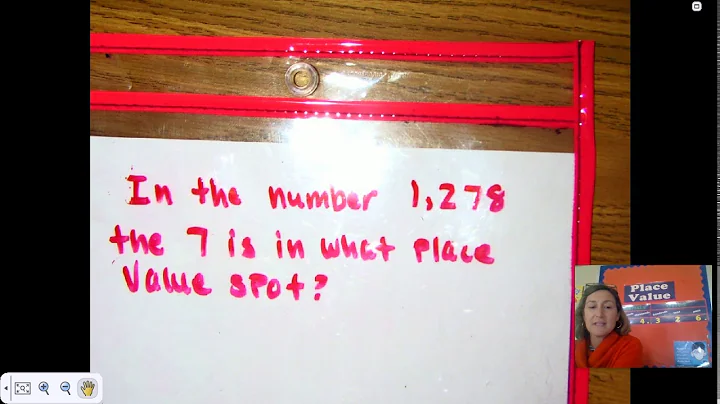 In the number 1,278
the 7 is in what place
Value spot?
Place
Value
4, 3 2 6